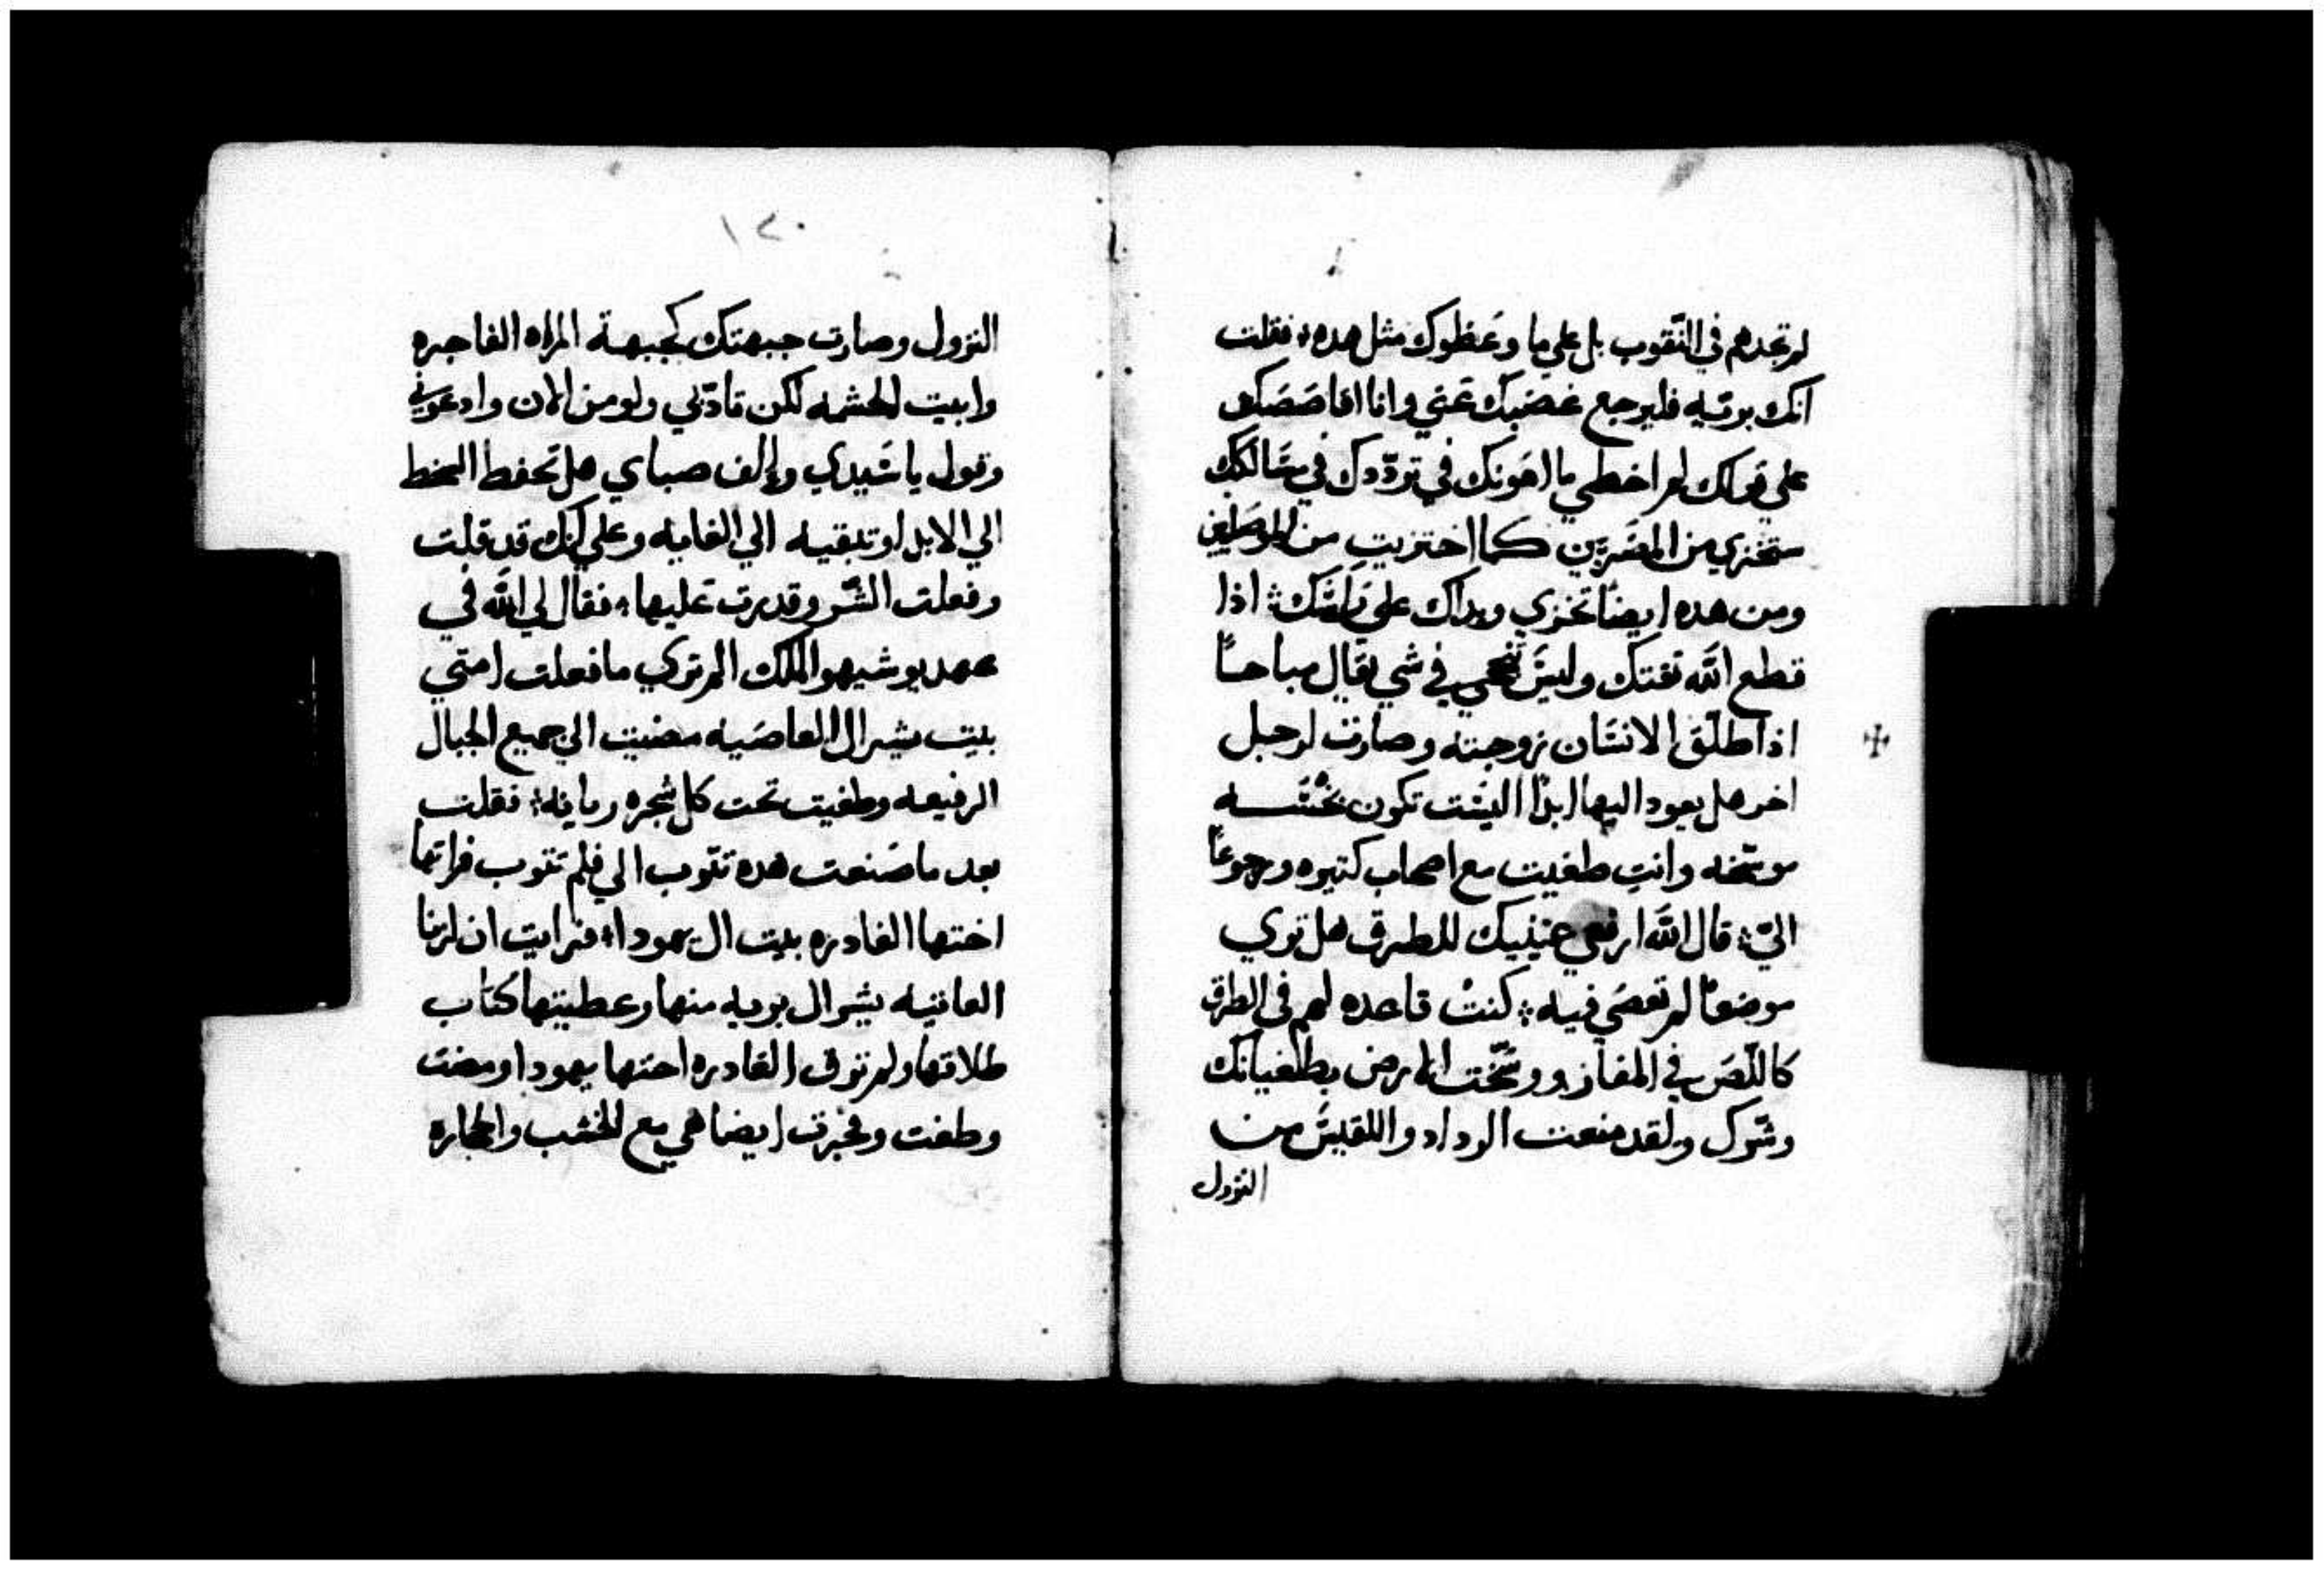 لم تجدهم في النّقوب بل علي ما وعظوك مثل هده، فقلت
انك بريّه فليرجع غضبك عني وانا اقاصصك
علي قولك لم اخطي ما اهونك في تردّدك في مسالكك
ستخزي من المصريّين كما اختزيتِ من الموصليين
ومن هده ايضًا تخزي ويداك علي راسك؛ اذا
قطع الله ثقتك وليس تنجحي في شي يقال مباحًا
اذا طلّق الانسان زوجته وصارت لرجل
اخر هل يعود اليها ابدًا اليست تكون نجسه
موسّخه وانتِ طغيت مع اصحاب كتيره ورجوعًا
اليّ؛ قال الله ارفعي عينيك للطرق هل تري
موضعًا لم تعصي فيه؛ كنتْ قاعده لهم في الطرق
كاللّص في المفاز ووسّخت الارض بطغيانك
وشرّك ولقد منعت الرداد واللقيس من
النزول
١٢٠
النزول وصارت جبهتك كجبهة المراه الفاجره
وابيت الحشمه لكن تادّبي ولو من الان وادعوني
وقول يا سيدي والف صباي هل تحفط السخط
الي الابد او تبقيه الي الغايه وعلي انك قد قلت
وفعلت الشر وقدرت عليها، فقال لي الله في
عهد يوشيهو الملك الم تري ما فعلت امتي
بيت يشرال العاصيه مضيت الي جميع الجبال
الرفيعه وطغيت تحت كل شجره ريانه؛ فقلت
بعد ما صنعت هده تتوب الي فلم تتوب فراتها
اختها الغادره بيت ال يهودا، فرايت ان لزنا
العاتيه يشرال بريه منها وعطيتها كتاب
طلاقها ولم توق الغادره اختها يهودا ومضت
وطغت وفجرت ايضا هي مع الخشب والحجاره